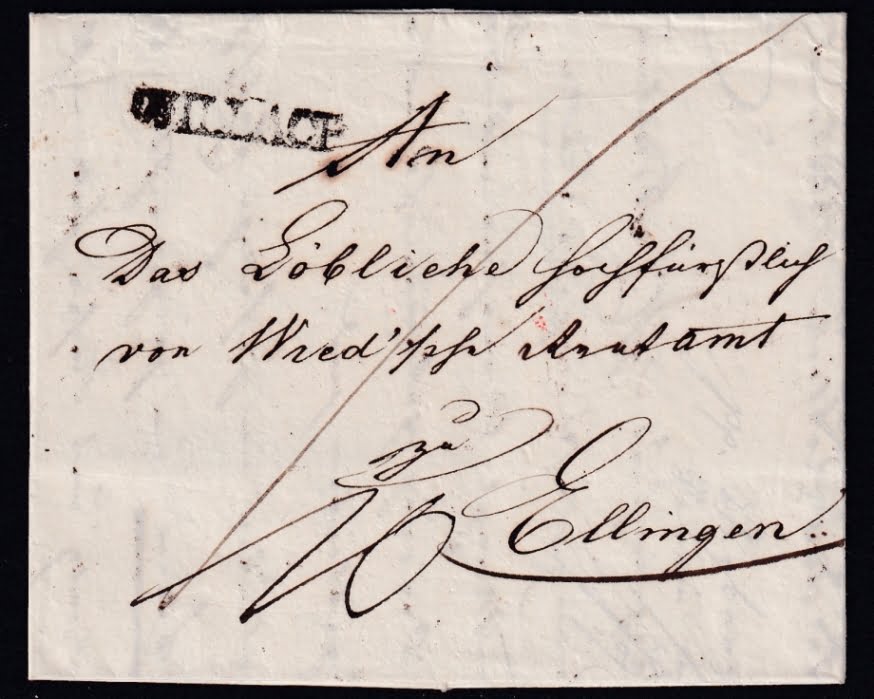 VILLACH
An
Das Löbliche hochfürstlich
von Wred'sche Rentamt
zu
Ellingen